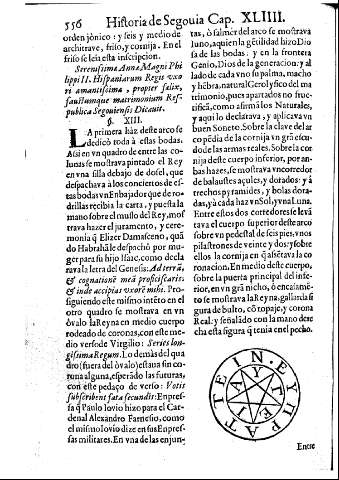 556 Historia de Segouia Cap. XLIIII.
orden jònico : y seis y medio de
architrave, friso, y cornija. En el
friso se leia esta inscripcion.
Serenissima Anna Magni Phi
lippi II. Hispaniarum Regis vxo
ri amantissima, propter felix,
faustumque matrimonium Ref-
publica Segouiensis Dicauit.
§. XIII.
LA primera haz deste arco se
dedicò toda à estas bodas.
Assi en vn quadro de entre las co
lunas se mostrava pintado el Rey
en vna silla debajo de dosel, que
despachava à los conciertos de es-
tas bodas vn Enbajador que de ro-
dillas recibia la carta, y puesta la
mano sobre el muslo del Rey, mos
trava hazer el juramento, y cere-
monia q̃ Eliezer Damasceno, quã
do Habrahã le despachò por mu-
ger para su hijo Isaac, como decla
rava la letra del Genesis: Ad terrã,
& cognationẽ meã proficiscaris:
& inde accipias vxorẽ mihi. Pro-
siguiendo este mismo intẽto en el
otro quadro se mostrava en vn
òvalo la Reyna en medio cuerpo
rodeado de coronas, con este me-
dio verso de Virgilio: Series lon-
gissima Regum. Lo demàs del qua
dro (fuera del òvalo) estava sin co-
runa alguna, esperãdo las futuras,
con este pedaço de verso: Votis
subscribent fata secundis: En pres-
sa q̃ Paulo Iovio hizo para el Car-
denal Alexandro Farnesio, como
el mismo Iovio dize en sus Enpres-
sas militares. En vna de las enjun-
tas, ò salmer del arco se mostrava
Iuno, aquien la gẽtilidad hizo Dio
sa de las bodas: y en la frontera
Genio, Dios de la generacion: y al
lado de cada vno su palma, macho
y hẽbra, natural Geroglysico del ma
trimonio, pues apartados no fruc-
tificã, como afirmã los Naturales,
y aqui lo declarava, y aplicava vn
buen Soneto. Sobre la clave del ar
co pẽdia de la cornija vn grã escu-
do de las armas reales. Sobre la cor
nija deste cuerpo inferior, por an-
bas hazes, se mostrava vn corredor
de balaustes açules, y dorados: y à
trechos pyramides, y bolas dora-
das, y à cada haz vn Sol, y vna Luna.
Entre estos dos corredores se levã
tava el cuerpo superior deste arco
sobre vn pedestal de seis pies, y nos
pilastrones de veinte y dos: y sobre
ellos la cornija en q̃ assètava la co
ronacion. En medio deste cuerpo,
sobre la puerta principal del infe-
rior, en vn grã nicho, ò encasamẽ-
to se mostrava la Reyna, gallarda si
gura de bulto, cõ topaje, y corona
Real: y señalado con la mano dere
cha esta figura q̃ tenia en el pecho.
Entre